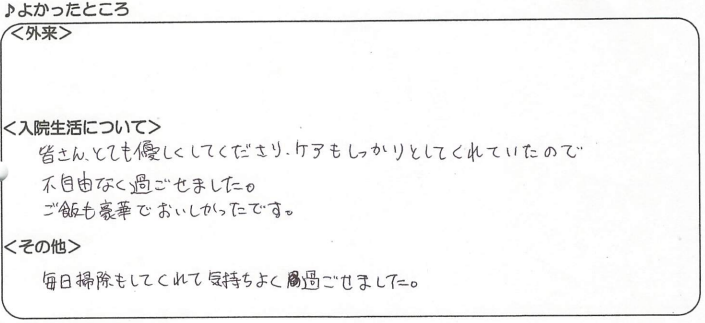 ♪よかったところ
＜外来＞
＜入院生活について＞
皆さん、とても優しくしてくださり、ケアもしっかりとしてくれていたので
不自由なく過ごせました。
ご飯も豪華でおいしかったです。
＜その他＞
毎日掃除もしてくれて気持ちよく過ごせました。